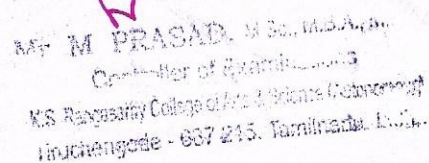 Mr M PRASAD, M.Sc., M.B.A.,
Controller of Examinations
K.S. Rangasamy College of Arts & Science (Autonomous)
Tiruchengode - 637 215. Tamilnadu.